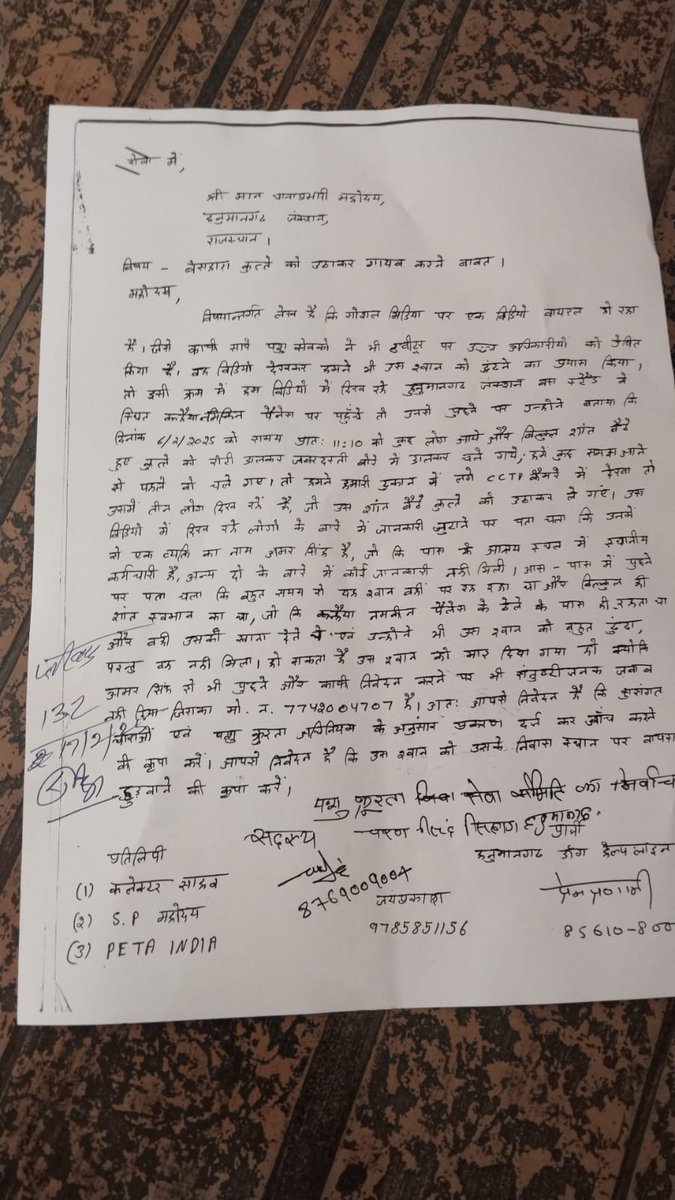 सेवा में,
श्री मान थानाप्रभारी महोदय,
हनुमानगढ जंक्शन,
राजस्थान ।
विषय - बेसहारा कुत्ते को उठाकर गायब करने बाबत ।
महोदय,
विषयान्तर्गत लेख है कि सोशल मिडिया पर एक विडियो वायरल हो रहा
है। जिसे काफी सारे पशु सेवकों ने भी ट्वीटर पर उच्च अधिकारीयों को प्रेषित
किया है, वह विडियो देखकर हमने भी उस श्वान को ढुंढने का प्रयास किया,
तो इसी क्रम में हम विडियों में दिख रहे हनुमानगढ जंक्शन बस स्टैण्ड में
स्थित कन्हैया नमकिन पैलेस पर पहुँचे तो उनसे पुछने पर उन्होने बताया कि
दिनांक 6/2/2025 को समय प्रातः 11:10 को कुछ लोग आये और बिल्कुल शांत बैठे
हुए कुत्ते को रोटी डालकर जबरदस्ती बोरे में डालकर चले गये, हमें कुछ समझ आने
से पहले वो चले गए। तो हमने हमारी दुकान में लगे CCTV कैमरे में देखा तो
उसमें तीन लोग दिख रहें है, जो उस शांत बैठे कुत्ते को उठाकर ले गए। उस
विडियों में दिख रहे लोगों के बारे में जानकारी जुटाने पर पता चला कि उनमें
से एक व्यक्ति का नाम अमर सिंह है, जो कि पास के आश्रय स्थल में स्थानीय
कर्मचारी है, अन्य दो के बारे में कोई जानकारी नही मिली। आस-पास में पुछने
पर पता चला कि बहुत समय से यह श्वान वहीं पर रह रहा था और बिल्कुल ही
शांत स्वभाव का था, जो कि कन्हैया नमकीन पैलेस के ठेले के पास ही रहता था
और वही उसको खाना देते थे एवं उन्होंने भी उस श्वान को बहुत ढुंढा,
परन्तु वह नही मिला। हो सकता है उस श्वान को मार दिया गया हो क्योंकि
अमर सिंह से भी पुछने और काफी निवेदन करने पर भी संतुष्टीजनक जवाब
नही दिया जिसका मो. न. 7742004707 है। अतः आपसे निवेदन है कि सुसंगत
धाराओं एवं पशु क्रुरता अधिनियम के अनुसार प्रकरण दर्ज कर जाँच करने
की कृपा करें। आपसे निवेदन है कि उस श्वान को उसके निवास स्थान पर वापस
छुडवाने की कृपा करें।
132
पशु क्रूरता जिला सेवा समिति का
सदस्य
प्रार्थी
प्रतिलिपी
हनुमानगढ डॉग हैल्प लाइन
(1) कलेक्टर साहब
8769009004
(2) S.P महोदय
जयप्रकाश
(3) PETA INDIA
9785851156
85610-800